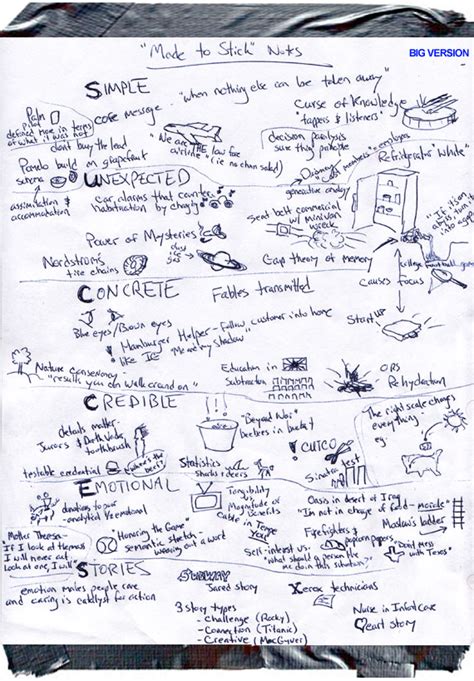 BIG VERSION
"Made to Stick" Notes
SIMPLE
"when nothing else can be taken away"
Palm Pilot
defined more in terms
of what it was not
core message
Curse of Knowledge
"tappers & listeners"
don't bury the lead
"We are THE low fare
airline" (i.e. no chan salad)
decision paralysis
sure thing principle
Pomelo build on grapefruit
schema
"Refrigerator White"
UNEXPECTED
generative analogy
assimilation &
accommodation
Car alarms that counter
habituation by changing
seat belt commercial
w/ minivan
wreck
Power of Mysteries
Nordstrom's
tire chains
Gap theory of memory
causes
focus
CONCRETE
Fables transmitted
Blue eyes/Brown eyes
Hamburger Helper - follow customer into home
like ICE "Me and my shadow"
Start up
Nature Conservancy
"results you can walk around on"
Education in
Subtraction
ORS
Rehydration
CREDIBLE
details matter-
Jurors & Darth Vader
toothbrush
"Beyond War"
beebees in bucket
The right scale changes
everything
eg.
testable credential
"Where's the
beef?"
Statistics
Sharks & deers
Sinatra test
EMOTIONAL
donations to poor
-analytical v emotional
Tangibility
vs.
Magnitude of
Benefits
Cable in Tempe
Oasis in desert of Iraq
"I'm not in charge of food - morale"
Maslow's ladder
Mother Theresa-
If I look at the mass
I will never act
Look at one, I will
Honoring the Game
semantic stretch -
wearing out a word
Firefighters &
popcorn poppers
Self-interest vs.
"what should a person like
me do in this situation?"
"Don't mess
with Texas"
STORIES
emotion makes people care
and caring is catalyst for action
SUBWAY
Jared story
Xerox technicians
3 story types
- Challenge (Rocky)
- Connection (Titanic)
- Creative (MacGyver)
Nurse in Infant care
Heart story